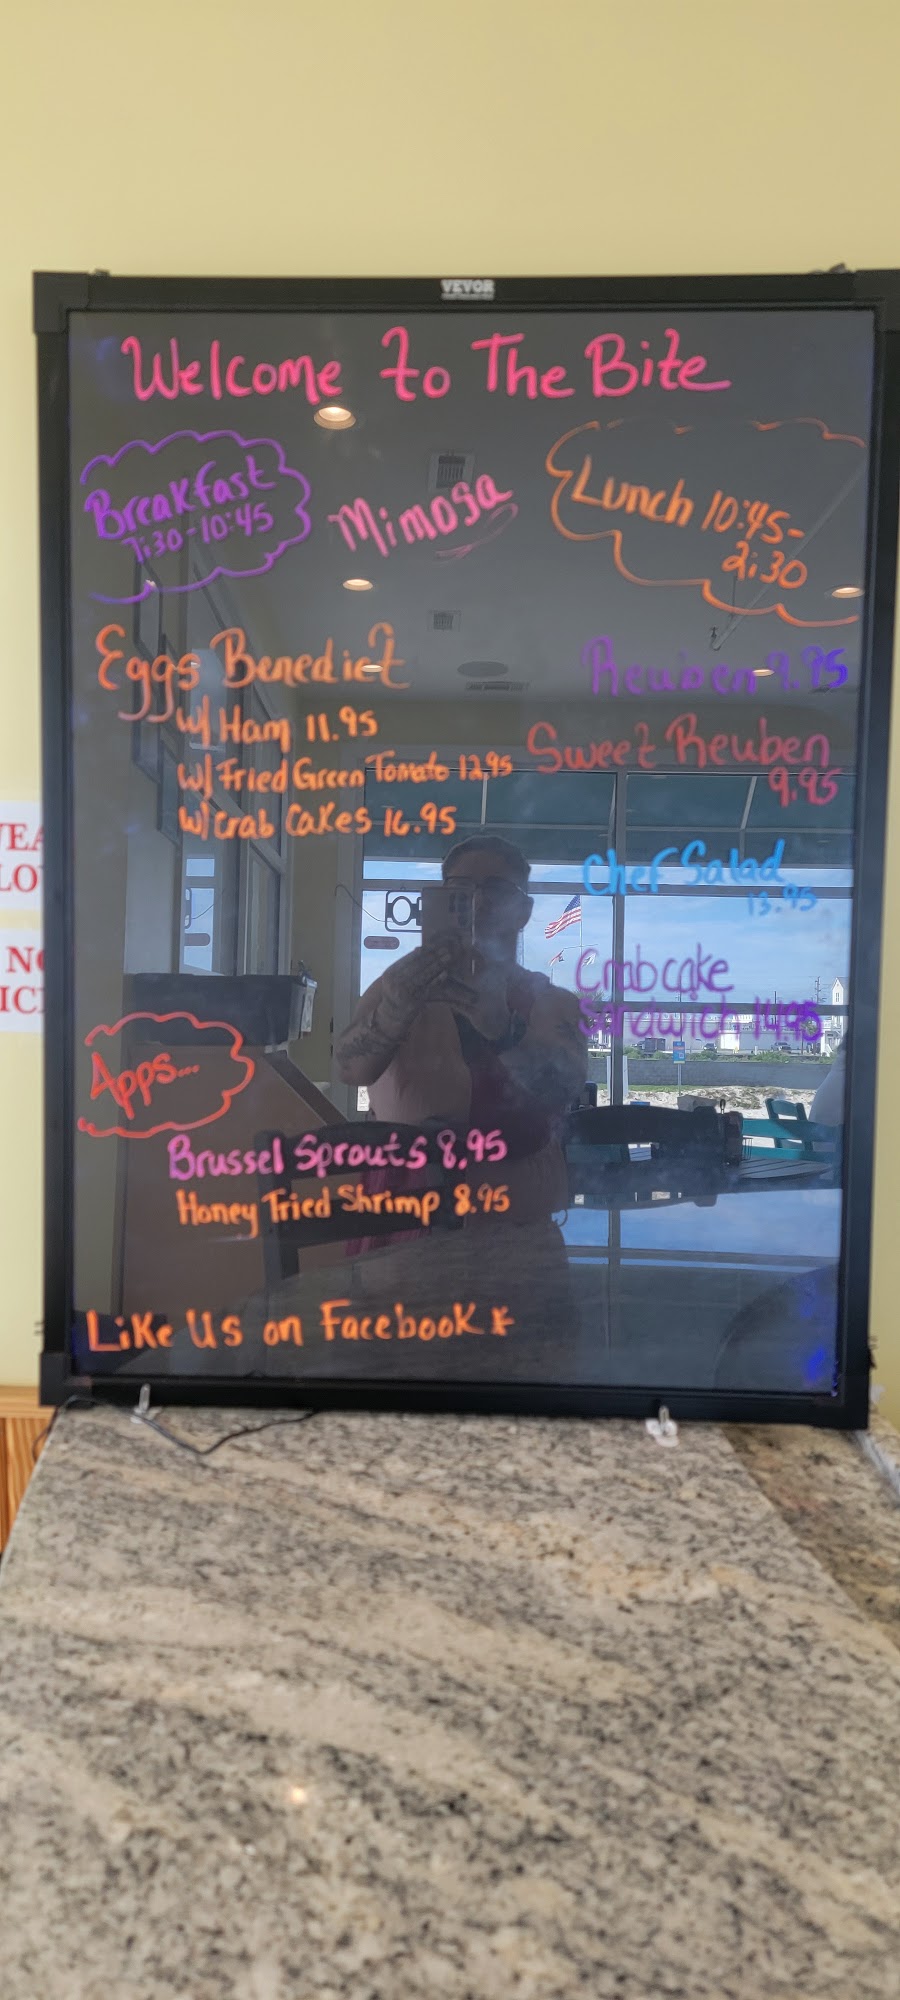 VEVOR
Welcome to The Bite
Breakfast
7:30-10:45
Mimosa
Lunch 10:45-
2:30
Eggs Benedict
w/ Ham 11.95
w/ Fried Green Tomato 12.95
w/ Crab Cakes 16.95
Reuben 9.95
Sweet Reuben
9.95
Chef Salad
13.95
Crabcake
Sandwich 14.95
Apps...
Brussel Sprouts 8.95
Honey Fried Shrimp 8.95
Like Us on Facebook *